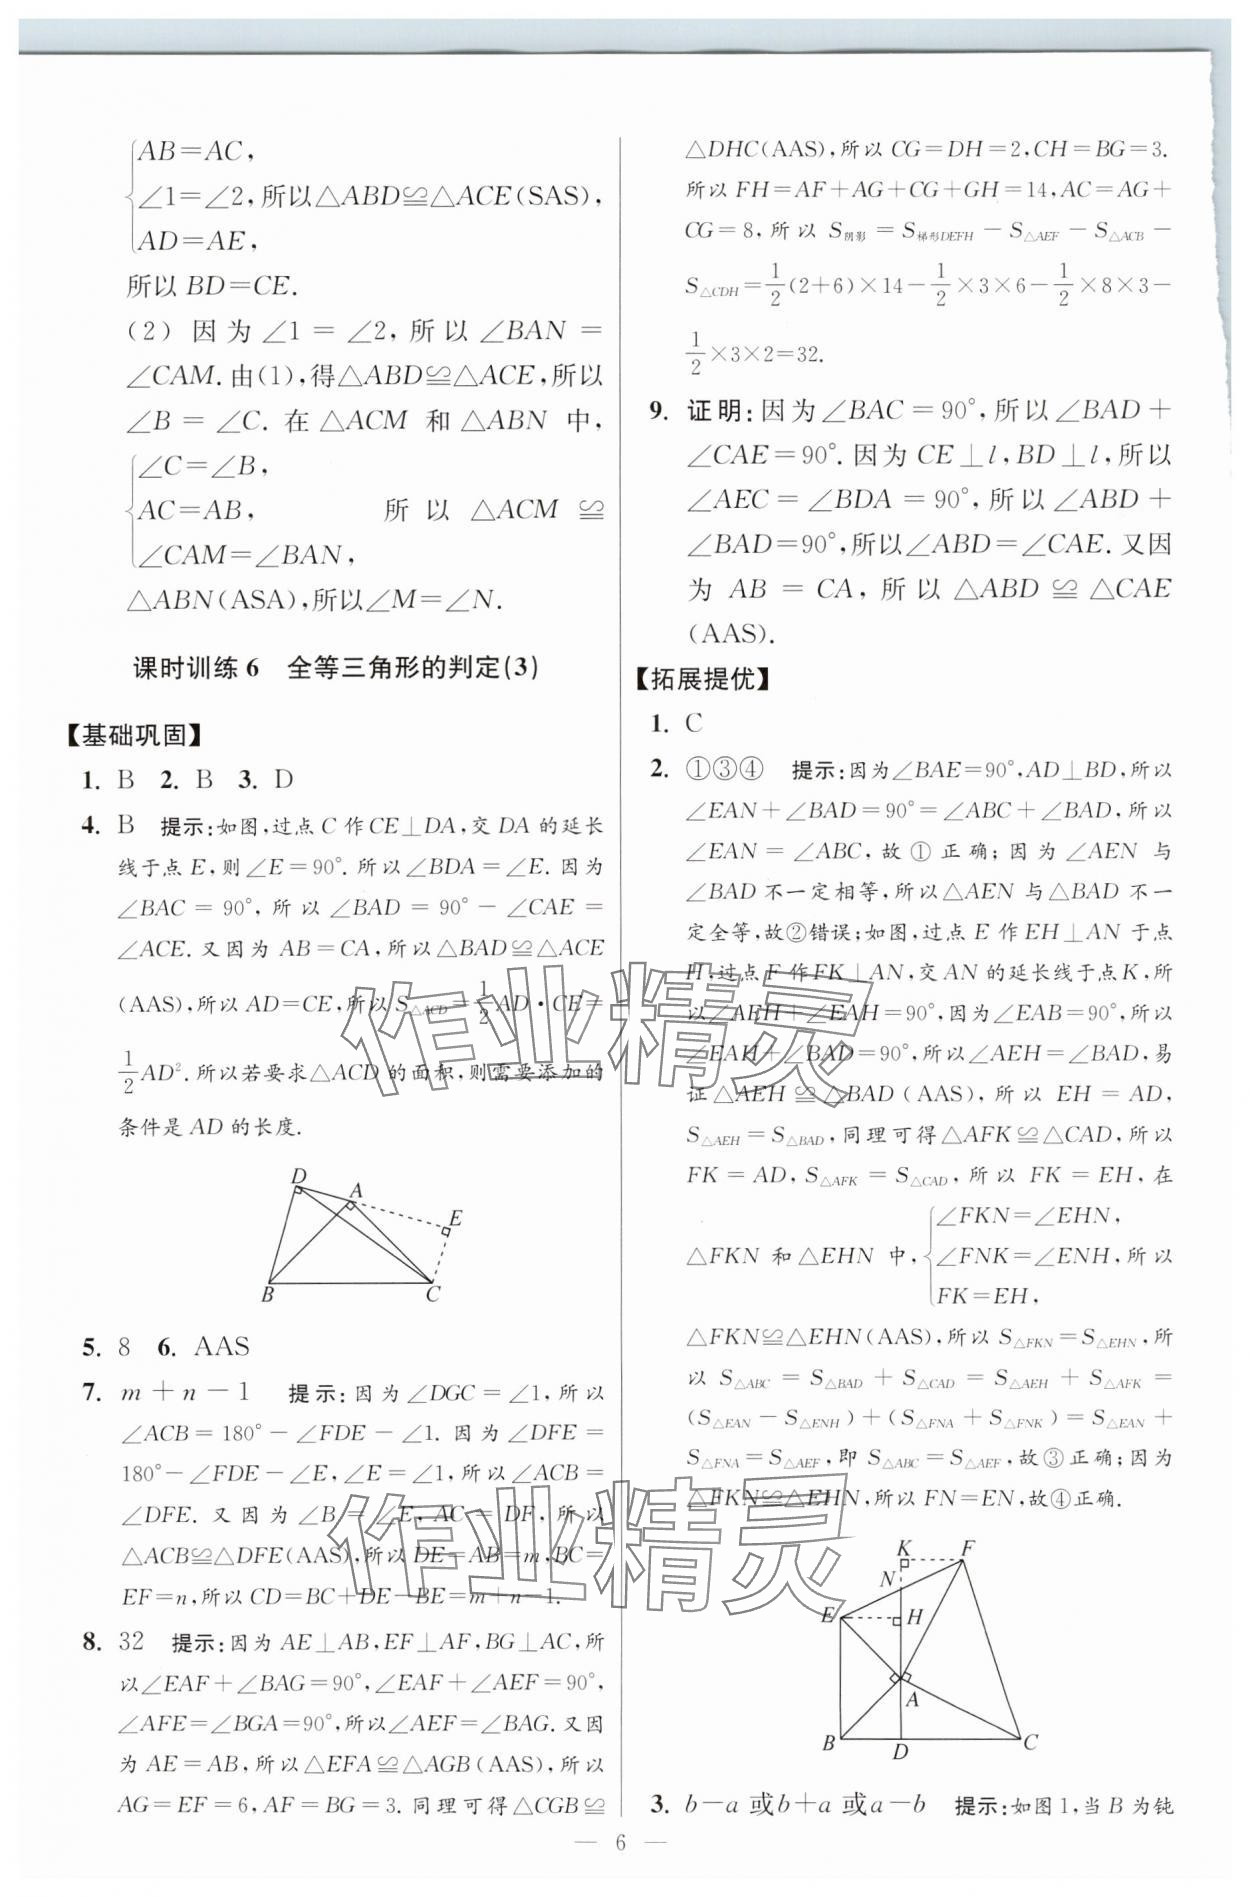 AB=AC,
∠1=∠2,所以△ABD≌△ACE(SAS),
AD=AE,
所以 BD=CE.
(2) 因为 ∠1 = ∠2,所以 ∠BAN =
∠CAM.由(1),得△ABD≌△ACE,所以
∠B = ∠C. 在 △ACM 和 △ABN 中,
∠C=∠B,
AC=AB, 所以 △ACM ≌
∠CAM=∠BAN,
△ABN(ASA),所以∠M=∠N.
课时训练6 全等三角形的判定(3)
【基础巩固】
1. B 2. B 3. D
4. B 提示:如图,过点 C 作 CE⊥DA,交 DA 的延长
线于点 E,则∠E=90°.所以∠BDA=∠E.因为
∠BAC = 90°,所以 ∠BAD = 90° - ∠CAE =
∠ACE.又因为 AB=CA,所以△BAD≌△ACE
(AAS),所以 AD=CE,所以S△ACD=1/2AD·CE=
1/2AD².所以若要求△ACD的面积,则需要添加的
条件是 AD 的长度.
D
A
E
B
C
5. 8 6. AAS
7. m+n-1 提示:因为∠DGC=∠1,所以
∠ACB=180°-∠FDE-∠1.因为∠DFE=
180°-∠FDE-∠E,∠E=∠1,所以∠ACB=
∠DFE.又因为∠B=∠E,AC=DF,所以
△ACB≌△DFE(AAS),所以DE=AB=m,BC=
EF=n,所以CD=BC+DE-BE=m+n-1.
8. 32 提示:因为 AE⊥AB,EF⊥AF,BG⊥AC,所
以∠EAF+∠BAG=90°,∠EAF+∠AEF=90°,
∠AFE=∠BGA=90°,所以∠AEF=∠BAG.又因
为 AE=AB,所以△EFA≌△AGB(AAS),所以
AG=EF=6,AF=BG=3.同理可得△CGB≌
△DHC(AAS),所以CG=DH=2,CH=BG=3.
所以FH=AF+AG+CG+GH=14,AC=AG+
CG=8,所以 S阴影=S梯形DEFH-S△AEF-S△ACB-
S△CDH=1/2(2+6)×14-1/2×3×6-1/2×8×3-
1/2×3×2=32.
9. 证明:因为∠BAC=90°,所以∠BAD+
∠CAE=90°.因为CE⊥l,BD⊥l,所以
∠AEC=∠BDA=90°,所以∠ABD+
∠BAD=90°,所以∠ABD=∠CAE.又因
为 AB = CA,所以 △ABD ≌ △CAE
(AAS).
【拓展提优】
1. C
2. ①③④ 提示:因为∠BAE=90°,AD⊥BD,所以
∠EAN+∠BAD=90°=∠ABC+∠BAD,所以
∠EAN=∠ABC,故①正确;因为∠AEN与
∠BAD不一定相等,所以△AEN与△BAD不一
定全等,故②错误;如图,过点E作EH⊥AN于点
H,过点F作FK⊥AN,交AN的延长线于点K,所
以∠AEH+∠EAH=90°,因为∠EAB=90°,所以
∠EAH+∠BAD=90°,所以∠AEH=∠BAD,易
证△AEH≌△BAD(AAS),所以 EH=AD,
S△AEH=S△BAD,同理可得△AFK≌△CAD,所以
FK=AD,S△AFK=S△CAD,所以 FK=EH,在
∠FKN=∠EHN,
△FKN 和△EHN 中, ∠FNK=∠ENH,所以
FK=EH,
△FKN≌△EHN(AAS),所以 S△FKN=S△EHN,所
以 S△ABC = S△BAD + S△CAD = S△AEH + S△AFK =
(S△EAN-S△ENH)+(S△FNA+S△FNK)=S△EAN+
S△FNA=S△AEF,即S△ABC=S△AEF,故③正确;因为
△FKN≌△EHN,所以FN=EN,故④正确.
K
F
N
E
H
A
B
D
C
3. b-a或b+a或a-b 提示:如图1,当B为钝
— 6 —
作业精灵
作业精灵